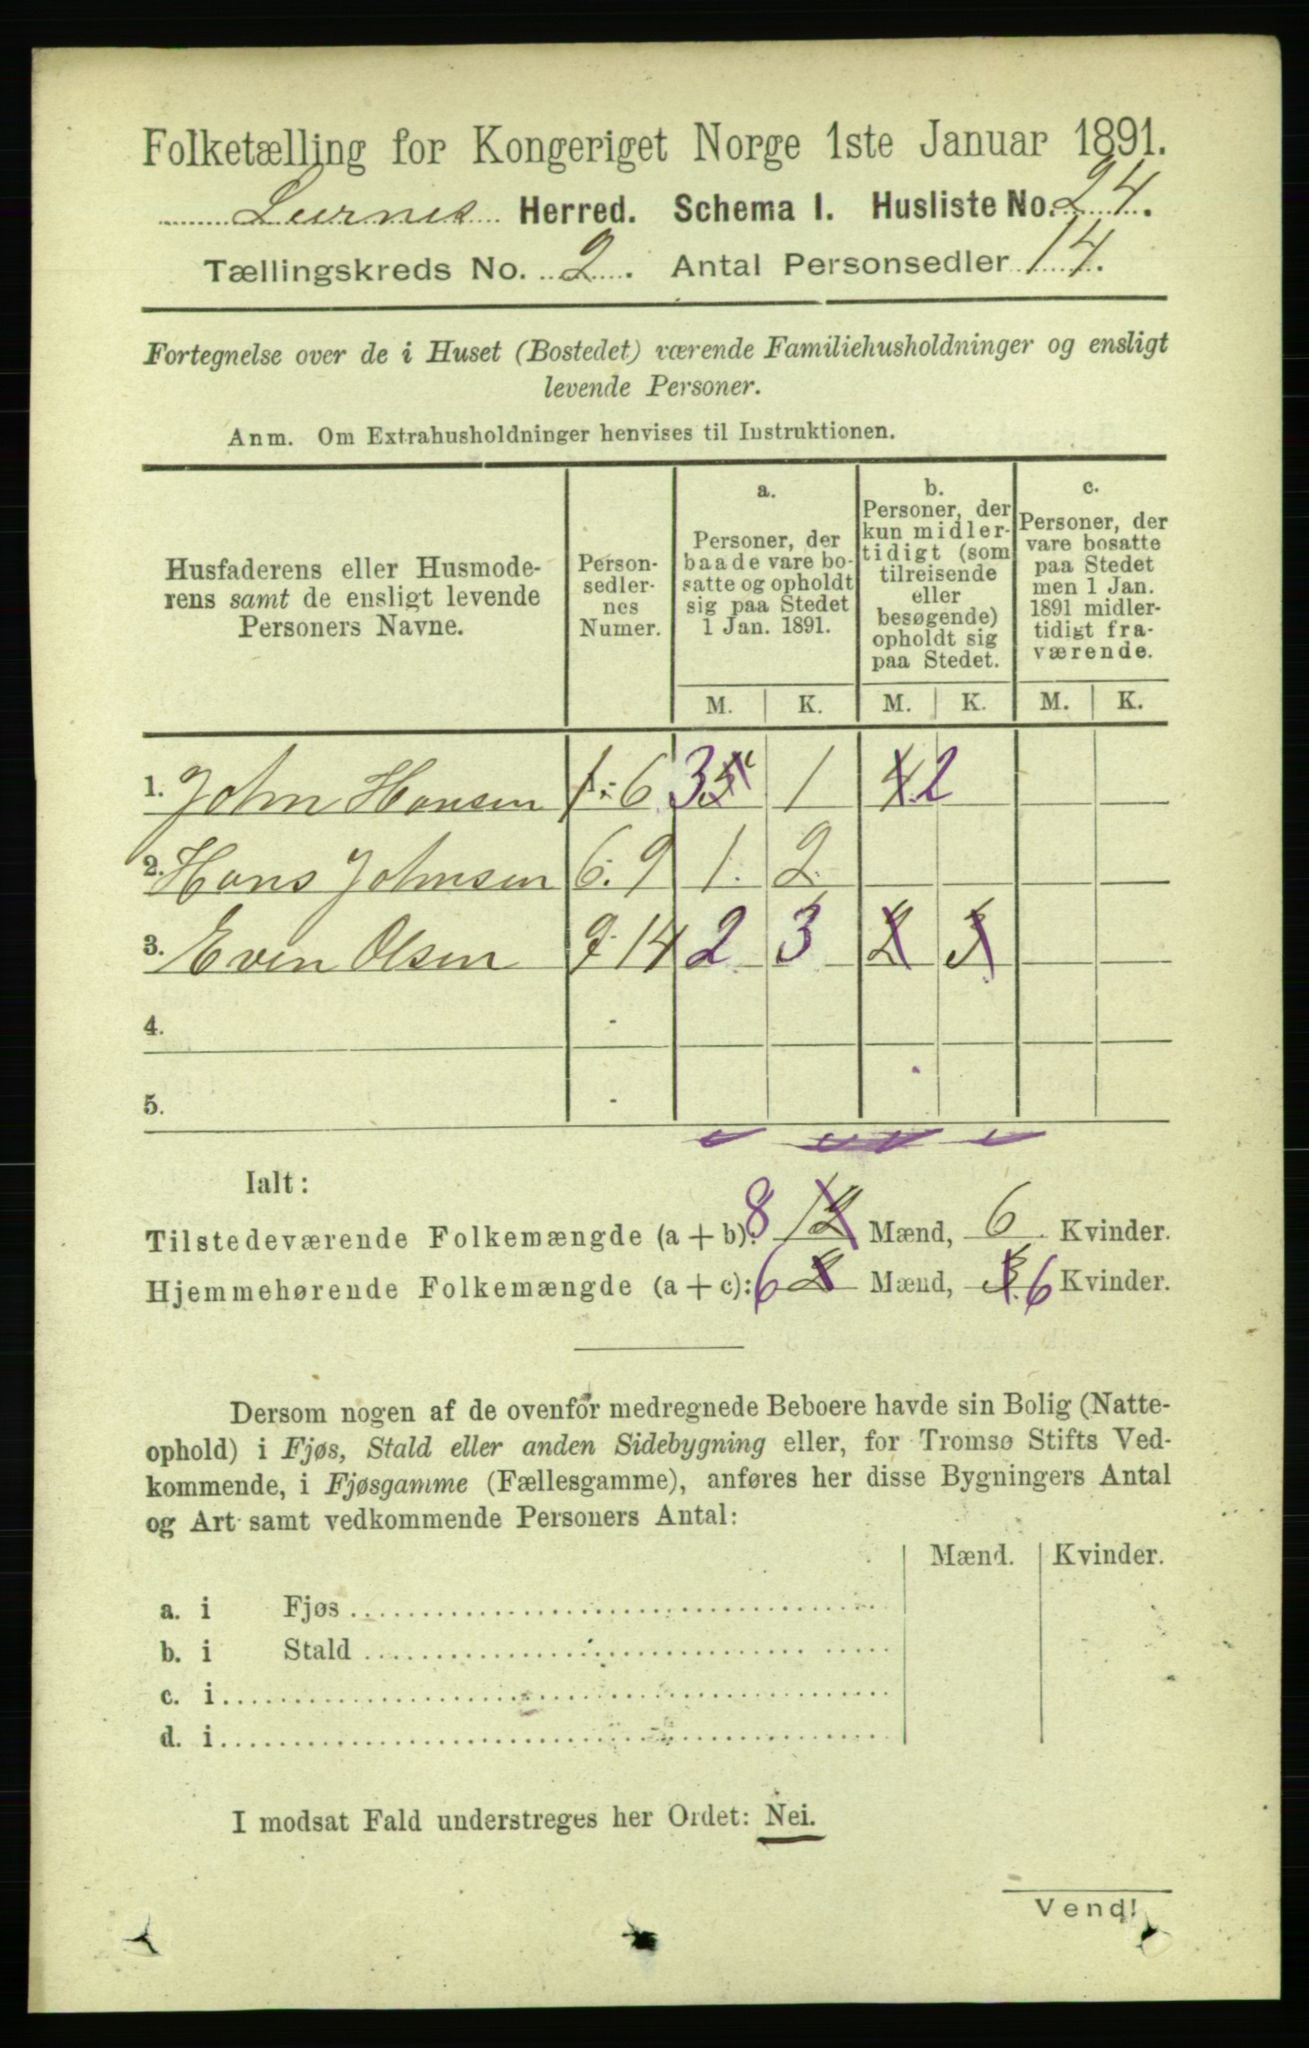 Folketælling for Kongeriget Norge 1ste Januar 1891.
Herred. Schema I. Husliste No. 24.
Tællingskreds No. 2. Antal Personsedler 14.
Fortegnelse over de i Huset (Bostedet) værende Familiehusholdninger og ensligt
levende Personer.
Anm. Om Extrahusholdninger henvises til Instruktionen.
Husfaderens eller Husmode-
rens samt de ensligt levende
Personers Navne.
Person-
sedler-
nes
Numer.
a.
Personer, der
baade vare bo-
satte og opholdt
sig paa Stedet
1 Jan. 1891.
b.
Personer, der
kun midler-
tidigt (som
tilreisende
eller
besøgende)
opholdt sig
paa Stedet.
c.
Personer, der
vare bosatte
paa Stedet
men 1 Jan.
1891 midler-
tidigt fra-
værende.
M. K. M. K. M. K.
1. John Hansen 1-6 3 1 4 2
2. Hans Johnsen 6.9 1. 2
3. Even Olsen 9-14 2 3 2 3
4. -
5. -
Ialt:
Tilstedeværende Folkemængde (a + b): 8 12 Mænd, 6 Kvinder.
Hjemmehørende Folkemængde (a + c): 6 Mænd, 6 Kvinder.
Dersom nogen af de ovenfor medregnede Beboere havde sin Bolig (Natte-
ophold) i Fjøs, Stald eller anden Sidebygning eller, for Tromsø Stifts Ved-
kommende, i Fjøsgamme (Fællesgamme), anføres her disse Bygningers Antal
og Art samt vedkommende Personers Antal:
Mænd. Kvinder.
a. i Fjøs
b. i Stald
c. i
d. i
I modsat Fald understreges her Ordet: Nei.
Vend!